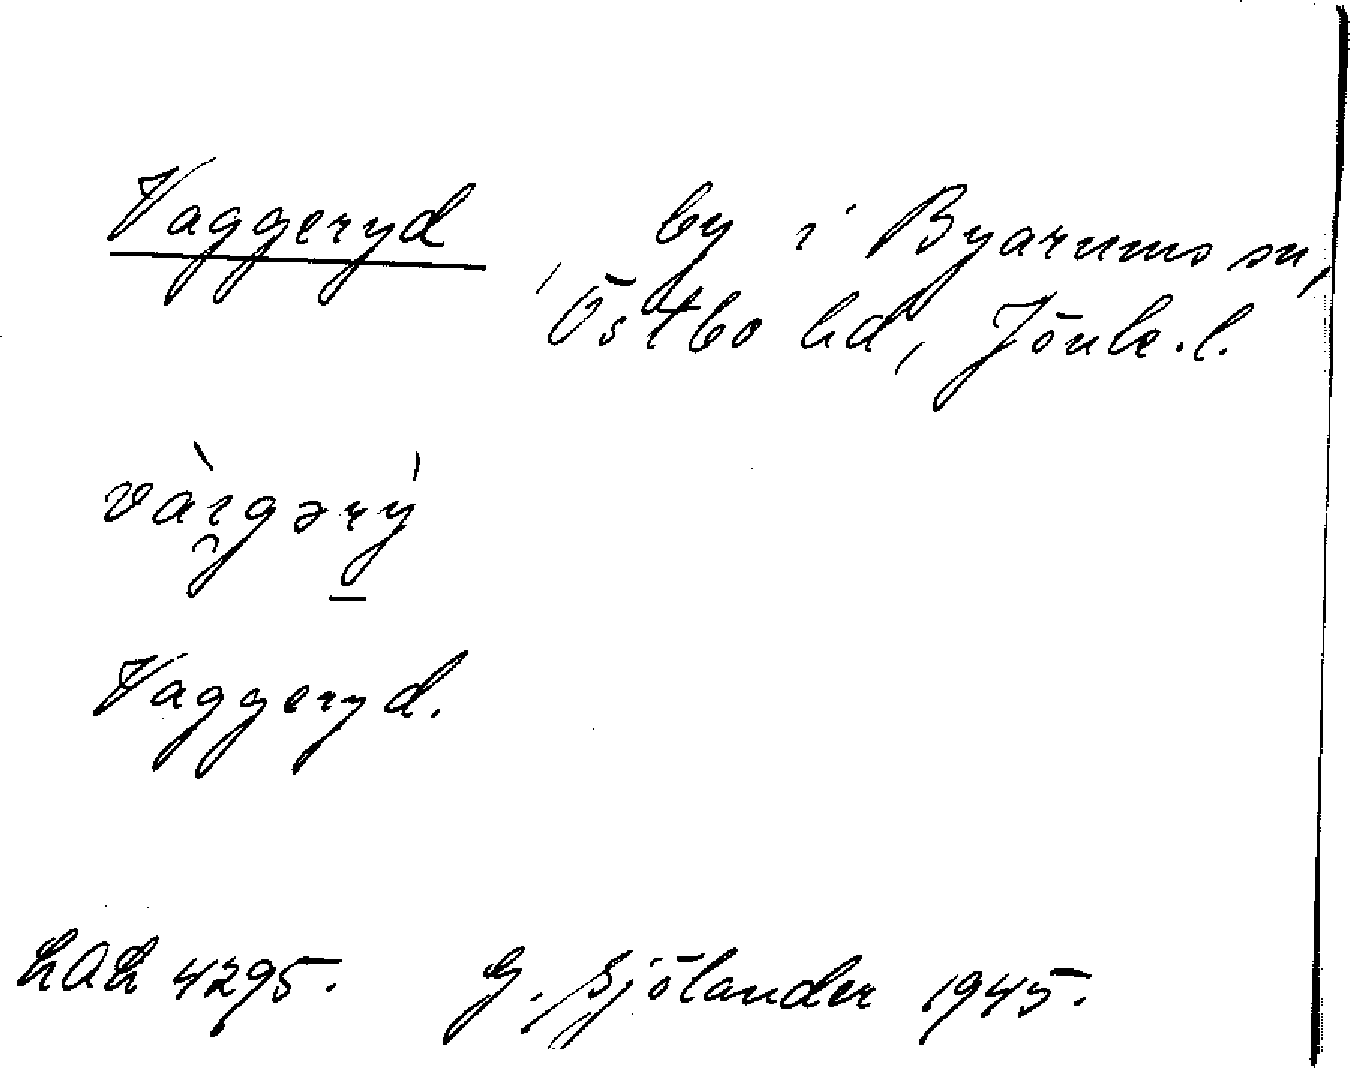 Vaggeryd, by i Byarums sn,
Östbo hd, Jönk. l.
Vaggeryd.
4295. G. Sjölander 1945.